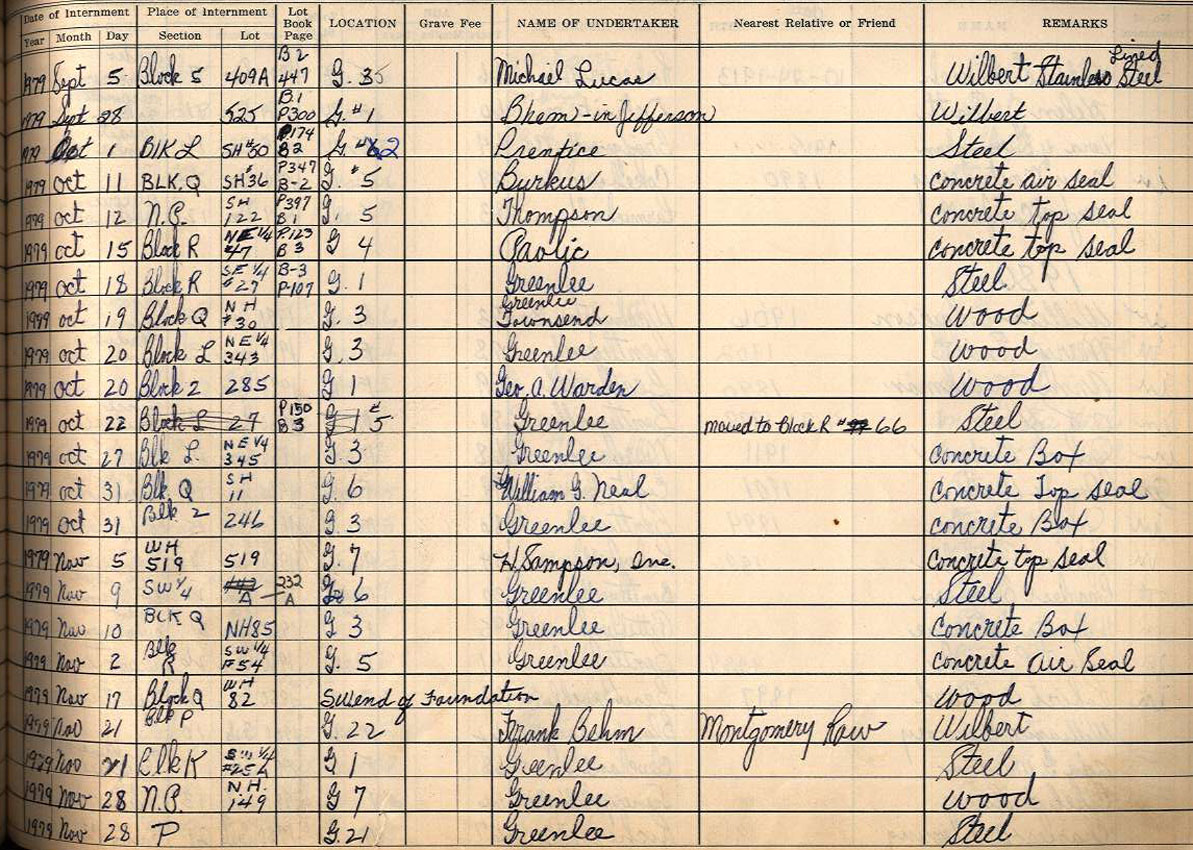 Date of Internment Place of Internment Lot Book Page LOCATION Grave Fee NAME OF UNDERTAKER Nearest Relative or Friend REMARKS
Year Month Day Section Lot
1979 Sept 5 Block 5 409A B2 447 G. 35 Michael Lucas Wilbert Stainless Steel Lined
1979 Sept 28 525 B.1 P300 G. #1 Bham-in Jefferson Wilbert
1979 Oct 1 BlK L SH#50 P174 B2 G. # 2 Prentice Steel
1979 oct 11 BLK. Q SH#36 P347 B-2 G. #5 Burkus concrete air seal
1979 oct 12 N.P. SH 122 P397 B1 G. 5 Thompson concrete top seal
1979 oct 15 Block R NE 1/4 #47 P.123 B3 G 4 Pavlic concrete top seal
1979 oct 18 Block R SE 1/4 #27 B-3 P-107 G. 1 Greenlee Steel
1979 oct 19 Block Q NH #30 G. 3 Greenlee Townsend Wood
1979 oct 20 Block L NE 1/4 343 G. 3 Greenlee Wood
1979 oct 20 Block 2 285 G 1 Geo. A. Warden Wood
1979 oct 22 Block L 27 P150 B3 G 1 #5 Greenlee moved to Block R # 66 Steel
1979 oct 27 Blk L. NE 1/4 345 G. 3 Greenlee Concrete Box
1979 oct 31 Blk. Q SH 11 G. 6 William G. Neal Concrete Top Seal
1979 Oct 31 Blk 2 246 G. 3 Greenlee concrete Box
1979 Nov 5 WH 519 519 G. 7 H. Sampson, Inc. Concrete top seal
1979 Nov 9 SW 1/4 A 232 A 6 Greenlee Steel
1979 Nov 10 BLK Q NH85 G 3 Greenlee Concrete Box
1979 Nov 2 Blk R SW 1/4 #54 G. 5 Greenlee concrete Air Seal
1979 Nov 17 Block Q WH 82 SW end of Foundation Wood
1979 Nov 21 Blk P G. 22 Frank Behm Montgomery Wilbert
1979 Nov 21 Blk K SW 1/4 G 1 Greenlee Steel
1979 Nov 28 N.P. NH. 149 G 7 Greenlee Wood
1979 Nov 28 P G. 21 Greenlee Steel